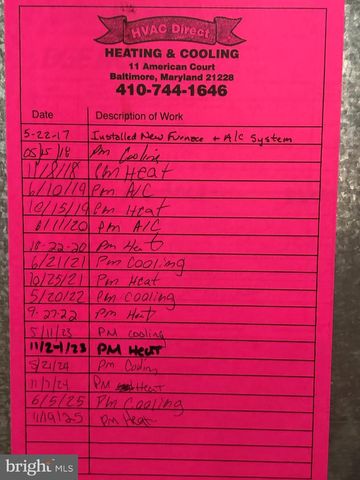 HVAC Direct
HEATING & COOLING
11 American Court
Baltimore, Maryland 21228
410-744-1646
Date Description of Work
5-22-17 Installed New Furnace + A/C System
05/25/18 PM Cooling
11/8/18 PM Heat
6/10/19 PM A/C
10/15/19 PM Heat
6/11/20 PM A/C
10-22-20 PM Heat
6/21/21 PM Cooling
10/25/21 PM Heat
5/20/22 PM Cooling
9-27-22 PM Heat
5/11/23 PM Cooling
11/21/23 PM Heat
5/21/24 PM Cooling
11/7/24 PM Heat
6/5/25 PM Cooling
11/19/25 PM Heat
bright MLS